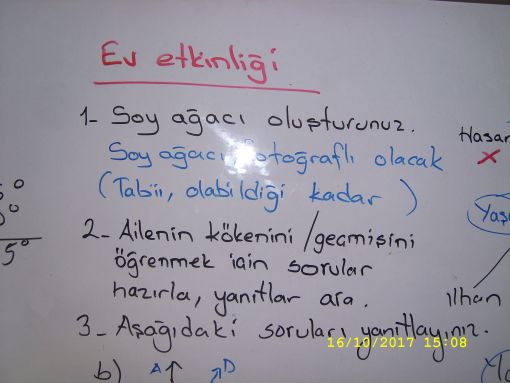 Ev etkinliği
1- Soy ağacı oluşturunuz.
Soy ağacı, fotoğraflı olacak
(Tabii, olabildiği kadar)
2- Ailenin kökenini/geçmişini
öğrenmek için sorular
hazırla, yanıtlar ara.
3- Aşağıdaki soruları yanıtlayınız.
b) A D
Hasan
ilhan
5°
16/10/2017 15:08